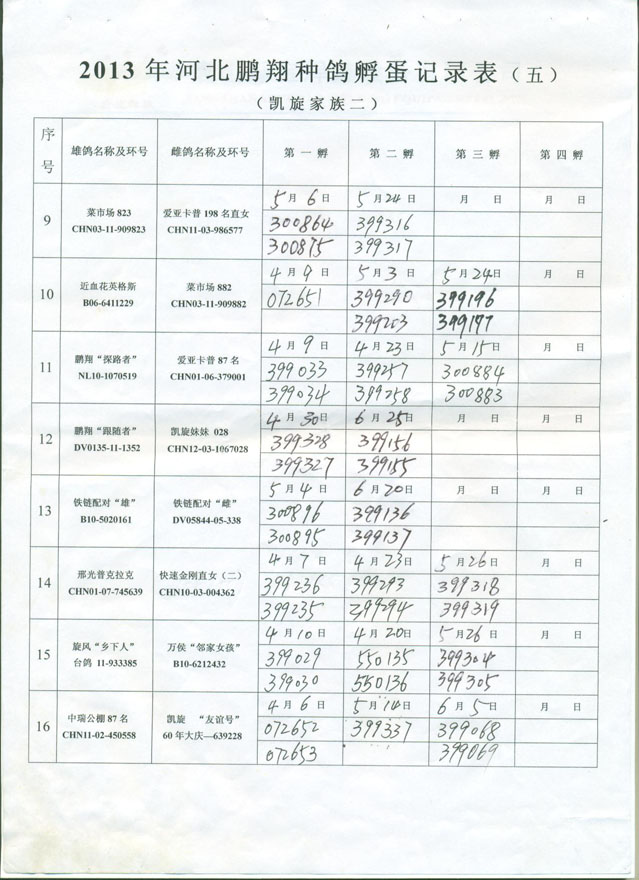 2013 年河北鹏翔种鸽孵蛋记录表（五）
（凯旋家族二）
序号 雄鸽名称及环号 雌鸽名称及环号 第一孵 第二孵 第三孵 第四孵
9 菜市场 823 爱亚卡普 198 名直女 5月6日 5月24日 月 日 月 日
CHN03-11-909823 CHN11-03-986577 300864 399316
300875 399317
10 近血花英格斯 菜市场 882 4月9日 5月3日 5月24日 月 日
B06-6411229 CHN03-11-909882 072651 399290 399196
399263 399197
11 鹏翔“探路者” 爱亚卡普 87 名 4月9日 4月23日 5月15日 月 日
NL10-1070519 CHN01-06-379001 399033 399257 300884
399034 399258 300883
12 鹏翔“跟随者” 凯旋妹妹 028 4月30日 6月25日 月 日 月 日
DV0135-11-1352 CHN12-03-1067028 399328 399156
399327 399155
13 铁链配对“雄” 铁链配对“雌” 5月4日 6月20日 月 日 月 日
B10-5020161 DV05844-05-338 300896 399136
300895 399137
14 邢光普克拉克 快速金刚直女（二） 4月7日 4月23日 5月26日 月 日
CHN01-07-745639 CHN10-03-004362 399236 399293 399318
399235 299294 399319
15 旋风“乡下人” 万侯“邻家女孩” 4月10日 4月20日 5月26日 月 日
台鸽 11-933385 B10-6212432 399029 550135 399304
399030 550136 399305
16 中瑞公棚 87 名 凯旋 “友谊号” 4月6日 5月14日 6月5日 月 日
CHN11-02-450558 60 年大庆—639228 072652 399337 399068
072653 399069